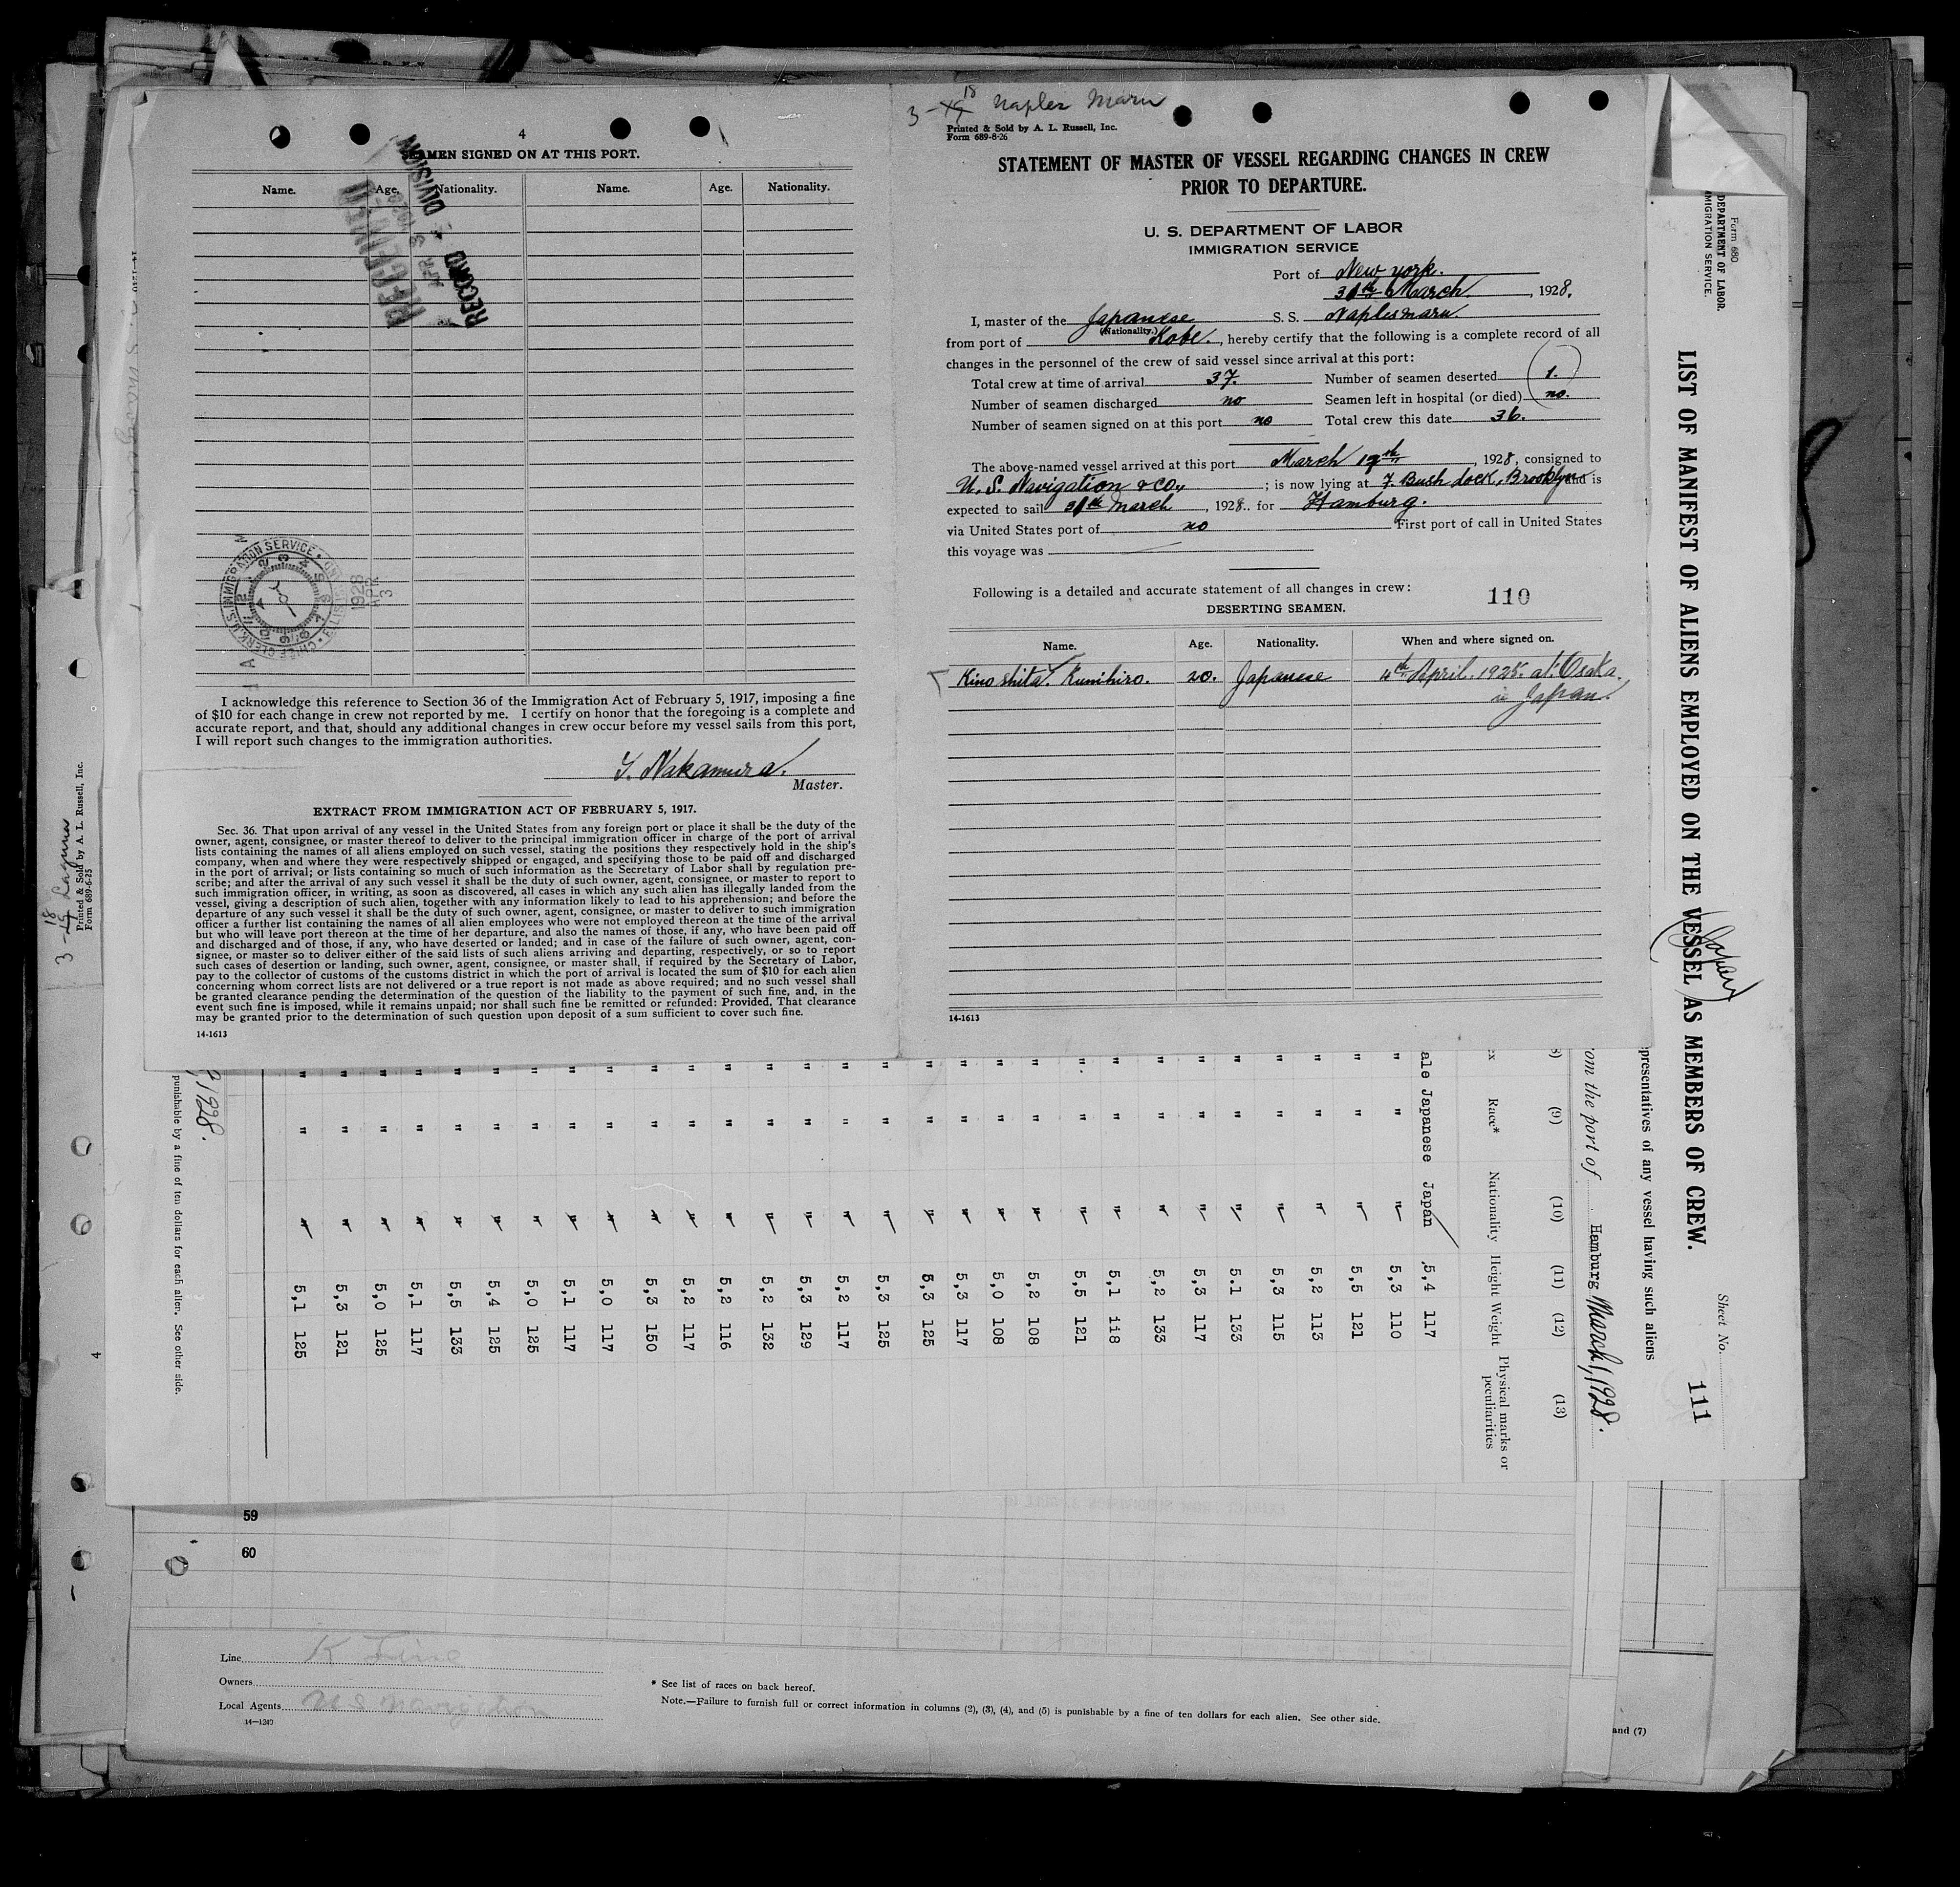 4
SEAMEN SIGNED ON AT THIS PORT.
Name. Age. Nationality. Name. Age. Nationality.
RECEIVED
APR 3 1928
RECORD DIVISION
CHIEF CLERK, U.S. IMMIGRATION SERVICE
1928 APR 3
I acknowledge this reference to Section 36 of the Immigration Act of February 5, 1917, imposing a fine
of $10 for each change in crew not reported by me. I certify on honor that the foregoing is a complete and
accurate report, and that, should any additional changes in crew occur before my vessel sails from this port,
I will report such changes to the immigration authorities.
Y. Nakamura.
Master.
EXTRACT FROM IMMIGRATION ACT OF FEBRUARY 5, 1917.
Sec. 36. That upon arrival of any vessel in the United States from any foreign port or place it shall be the duty of the
owner, agent, consignee, or master thereof to deliver to the principal immigration officer in charge of the port of arrival
lists containing the names of all aliens employed on such vessel, stating the positions they respectively hold in the ship's
company, when and where they were respectively shipped or engaged, and specifying those to be paid off and discharged
in the port of arrival; or lists containing so much of such information as the Secretary of Labor shall by regulation pre-
scribe; and after the arrival of any such vessel it shall be the duty of such owner, agent, consignee, or master to report to
such immigration officer, in writing, as soon as discovered, all cases in which any such alien has illegally landed from the
vessel, giving a description of such alien, together with any information likely to lead to his apprehension; and before the
departure of any such vessel it shall be the duty of such owner, agent, consignee, or master to deliver to such immigration
officer a further list containing the names of all alien employees who were not employed thereon at the time of the arrival
but who will leave port thereon at the time of her departure, and also the names of those, if any, who have been paid off
and discharged and of those, if any, who have deserted or landed; and in case of the failure of such owner, agent, con-
signee, or master so to deliver either of the said lists of such aliens arriving and departing, respectively, or so to report
such cases of desertion or landing, such owner, agent, consignee, or master shall, if required by the Secretary of Labor,
pay to the collector of customs of the customs district in which the port of arrival is located the sum of $10 for each alien
concerning whom correct lists are not delivered or a true report is not made as above required; and no such vessel shall
be granted clearance pending the determination of the question of the liability to the payment of such fine, and, in the
event such fine is imposed, while it remains unpaid; nor shall such fine be remitted or refunded: Provided, That clearance
may be granted prior to the determination of such question upon deposit of a sum sufficient to cover such fine.
14-1613
3-19 18 Naples Maru
Printed & Sold by A. L. Russell, Inc.
Form 689-8-26
STATEMENT OF MASTER OF VESSEL REGARDING CHANGES IN CREW
PRIOR TO DEPARTURE.
U. S. DEPARTMENT OF LABOR
IMMIGRATION SERVICE
Port of New York.
31th March, 1928.
I, master of the Japanese S. S. Naples maru.
(Nationality.)
from port of Kobe., hereby certify that the following is a complete record of all
changes in the personnel of the crew of said vessel since arrival at this port:
Total crew at time of arrival 37. Number of seamen deserted 1.
Number of seamen discharged no Seamen left in hospital (or died) no.
Number of seamen signed on at this port no Total crew this date 36.
The above-named vessel arrived at this port March 19th, 1928, consigned to
U. S. Navigation & Co.,; is now lying at 7. Bush dock, Brooklyn and is
expected to sail 31th March, 1928. for Hamburg.
via United States port of no First port of call in United States
this voyage was
Following is a detailed and accurate statement of all changes in crew: 110
DESERTING SEAMEN.
Name. Age. Nationality. When and where signed on.
Kinoshita. Kunihiro. 20. Japanese 4th April. 192 at Osaka.
in Japan.
14-1613
Form 680
DEPARTMENT OF LABOR
IMMIGRATION SERVICE.
LIST OF MANIFEST OF ALIENS EMPLOYED ON THE VESSEL AS MEMBERS OF CREW.
(Japan)
Sheet No.
111
presentatives of any vessel having such aliens
om the port of Hamburg March, 1, 1928.
(9) (10) (11) (12) (13)
Race* Nationality Height Weight Physical marks or peculiarities
ale Japanese Japan 5,4 117
" " " 5,3 110
" " " 5,5 121
" " " 5,2 113
" " " 5,3 115
" " " 5.1 133
" " " 5,3 117
" " " 5,2 133
" " " 5,1 118
" " " 5,5 121
" " " 5,2 108
" " " 5,0 108
" " " 5,3 117
" " " 5,3 125
" " " 5,3 125
" " " 5,2 117
" " " 5,3 129
" " " 5,2 132
" " " 5,2 116
" " " 5,2 117
" " " 5,3 150
" " " 5,0 117
" " " 5,1 117
" " " 5,0 125
" " " 5,4 125
" " " 5,5 133
" " " 5,1 117
" " " 5,0 125
" " " 5,3 121
" " " 5,1 125
, 1928.
punishable by a fine of ten dollars for each alien. See other side.
3-19 18 Laguna
Printed & Sold by A. L. Russell, Inc.
Form 689-6-25
4
59
60
Line K Line
Owners
Local Agents U S Navigation
14-1240
* See list of races on back hereof.
Note.—Failure to furnish full or correct information in columns (2), (3), (4), and (5) is punishable by a fine of ten dollars for each alien. See other side.
and (7)